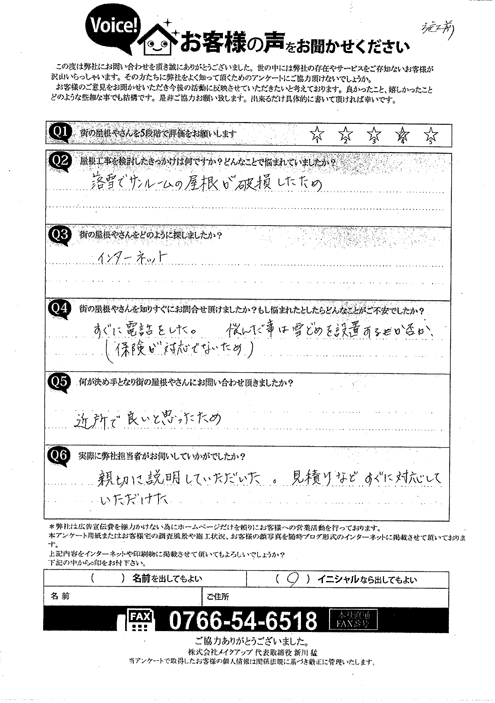 Voice!
お客様の声をお聞かせください
この度は弊社にお問い合わせを頂き誠にありがとうございました。世の中には弊社の存在やサービスをご存知ないお客様が
沢山いらっしゃいます。その方たちに弊社をよく知って頂くためのアンケートにご協力頂けないでしょうか。
お客様のご意見をお聞かせいただき今後の活動に反映させていただきたいと考えております。良かったこと、嬉しかったこと
どのような些細な事でも結構です。是非ご協力お願い致します。出来るだけ具体的に書いて頂ければ幸いです。
Q1 街の屋根やさんを5段階で評価をお願いします ☆ ☆ ☆ ☆ ☆
Q2 屋根工事を検討したきっかけは何ですか？どんなことで悩まれていましたか？
落雪でサンルームの屋根が破損したため
Q3 街の屋根やさんをどのように探しましたか？
インターネット
Q4 街の屋根やさんを知りすぐにお問合せ頂けましたか？もし悩まれたとしたらどんなことがご不安でしたか？
すぐに電話をした。 悩んだ事は雪どめを設置するか否か。
（保険が対応でないため）
Q5 何が決め手となり街の屋根やさんにお問い合わせ頂きましたか？
近所で良いと思ったため
Q6 実際に弊社担当者がお伺いしていかがでしたか？
親切に説明していただいた。見積りなどすぐに対応して
いただけた
＊弊社は広告宣伝費を極力かけない為にホームページだけを頼りにお客様への営業活動を行っております。
本アンケート用紙またはお客様宅の調査風景や施工状況、お客様の顔写真を随時ブログ形式のインターネットに掲載させて頂いております。
上記内容をインターネットや印刷物に掲載させて頂いてもよろしいでしょうか？
下記の中から○印をお付け下さい。
（ ）名前を出してもよい （○）イニシャルなら出してもよい
名前 ご住所
FAX 0766-54-6518 本社直通 FAX番号
ご協力ありがとうございました。
株式会社メイクアップ 代表取締役 新川 猛
当アンケートで取得したお客様の個人情報は関係法規に基づき厳正に管理いたします。